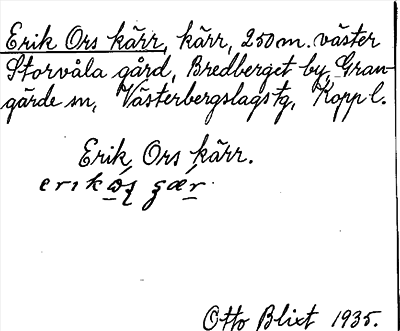 Erik Ors kärr, kärr, 250 m. väster
Storvåla gård, Bredberget by, Gran-
gärde sn, Västerbergslags tg, Kopp l.
Erik Ors kärr.
Otto Blixt 1935.